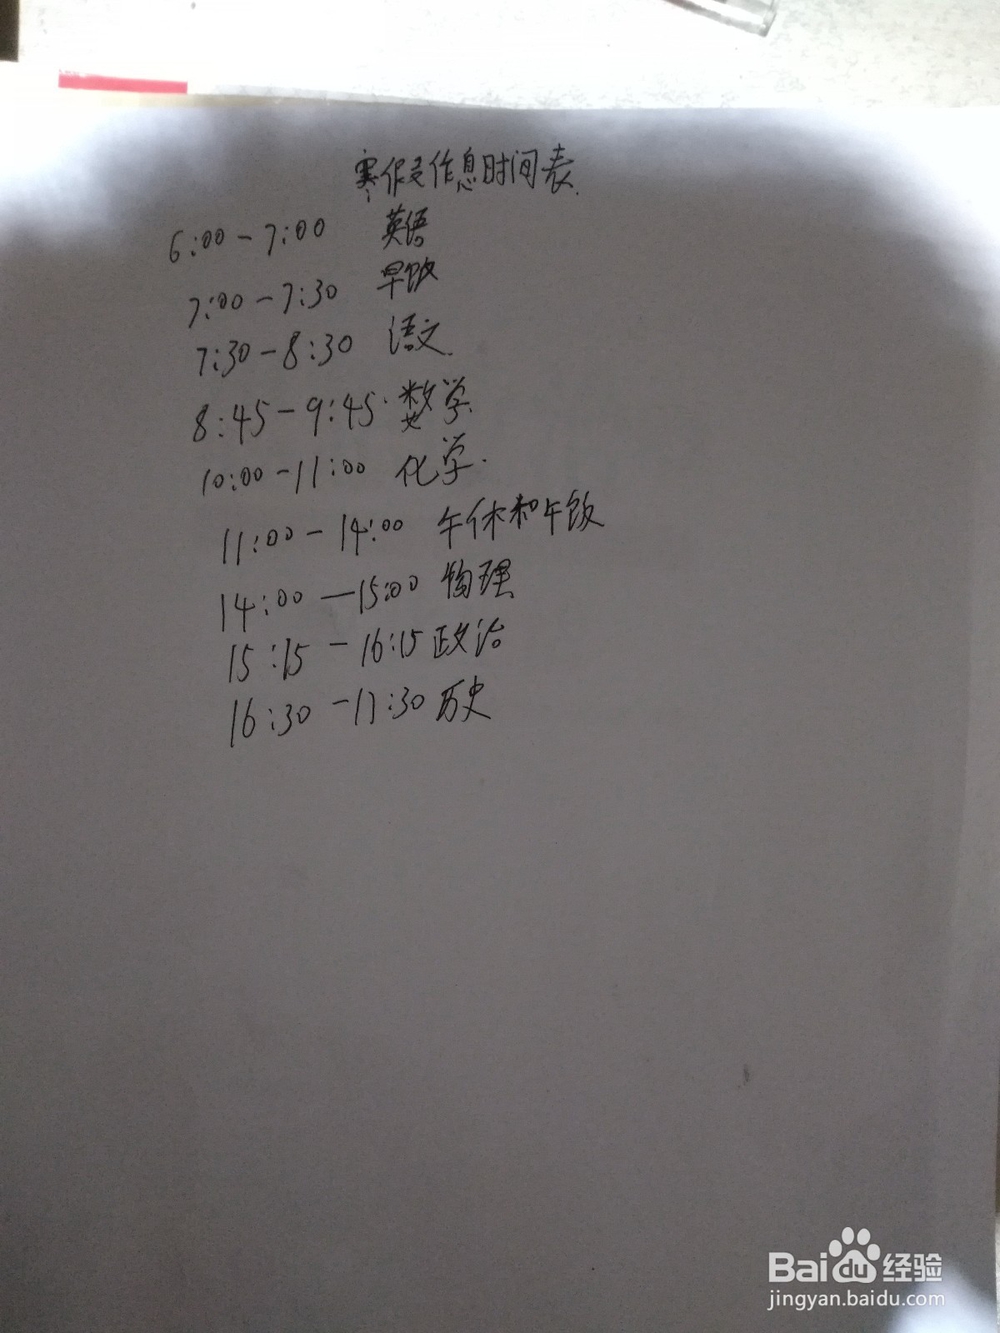 寒假作息时间表
6:00-7:00 英语
7:00-7:30 早饭
7:30-8:30 语文
8:45-9:45 数学
10:00-11:00 化学
11:00-14:00 午休和午饭
14:00-15:00 物理
15:15-16:15 政治
16:30-17:30 历史
Baidu经验
jingyan.baidu.com